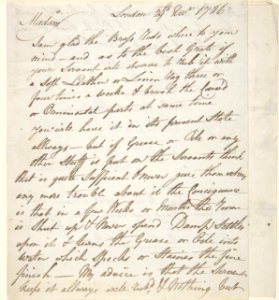 London 29th Decr 1786
Madam
I am glad the Brass Nobs where to your
mind – and as to the best Grate if
your Servant will choose to rub it with
a Soft Leather or Linnen Rag three or
four times a week & brush the Carvd
or Ornimental parts at same time
you will have it in its present State
allways – but if Grease or Oile or any
other Stuff is put on the Servants think
that is quite Sufficient & never give themselves
any more trouble about it the Consequence
is that in a few Weeks or Months the Room
is Shut up & Never opend Damp Settles
upon it & turns the Grease or Oile into
Water which Specks or Staines the fine
finish – My advice is that the Servant
keeps it allways well rubd & Nothing but